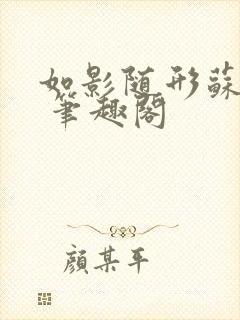 如影随形蘇
筆趣閣
顔某平